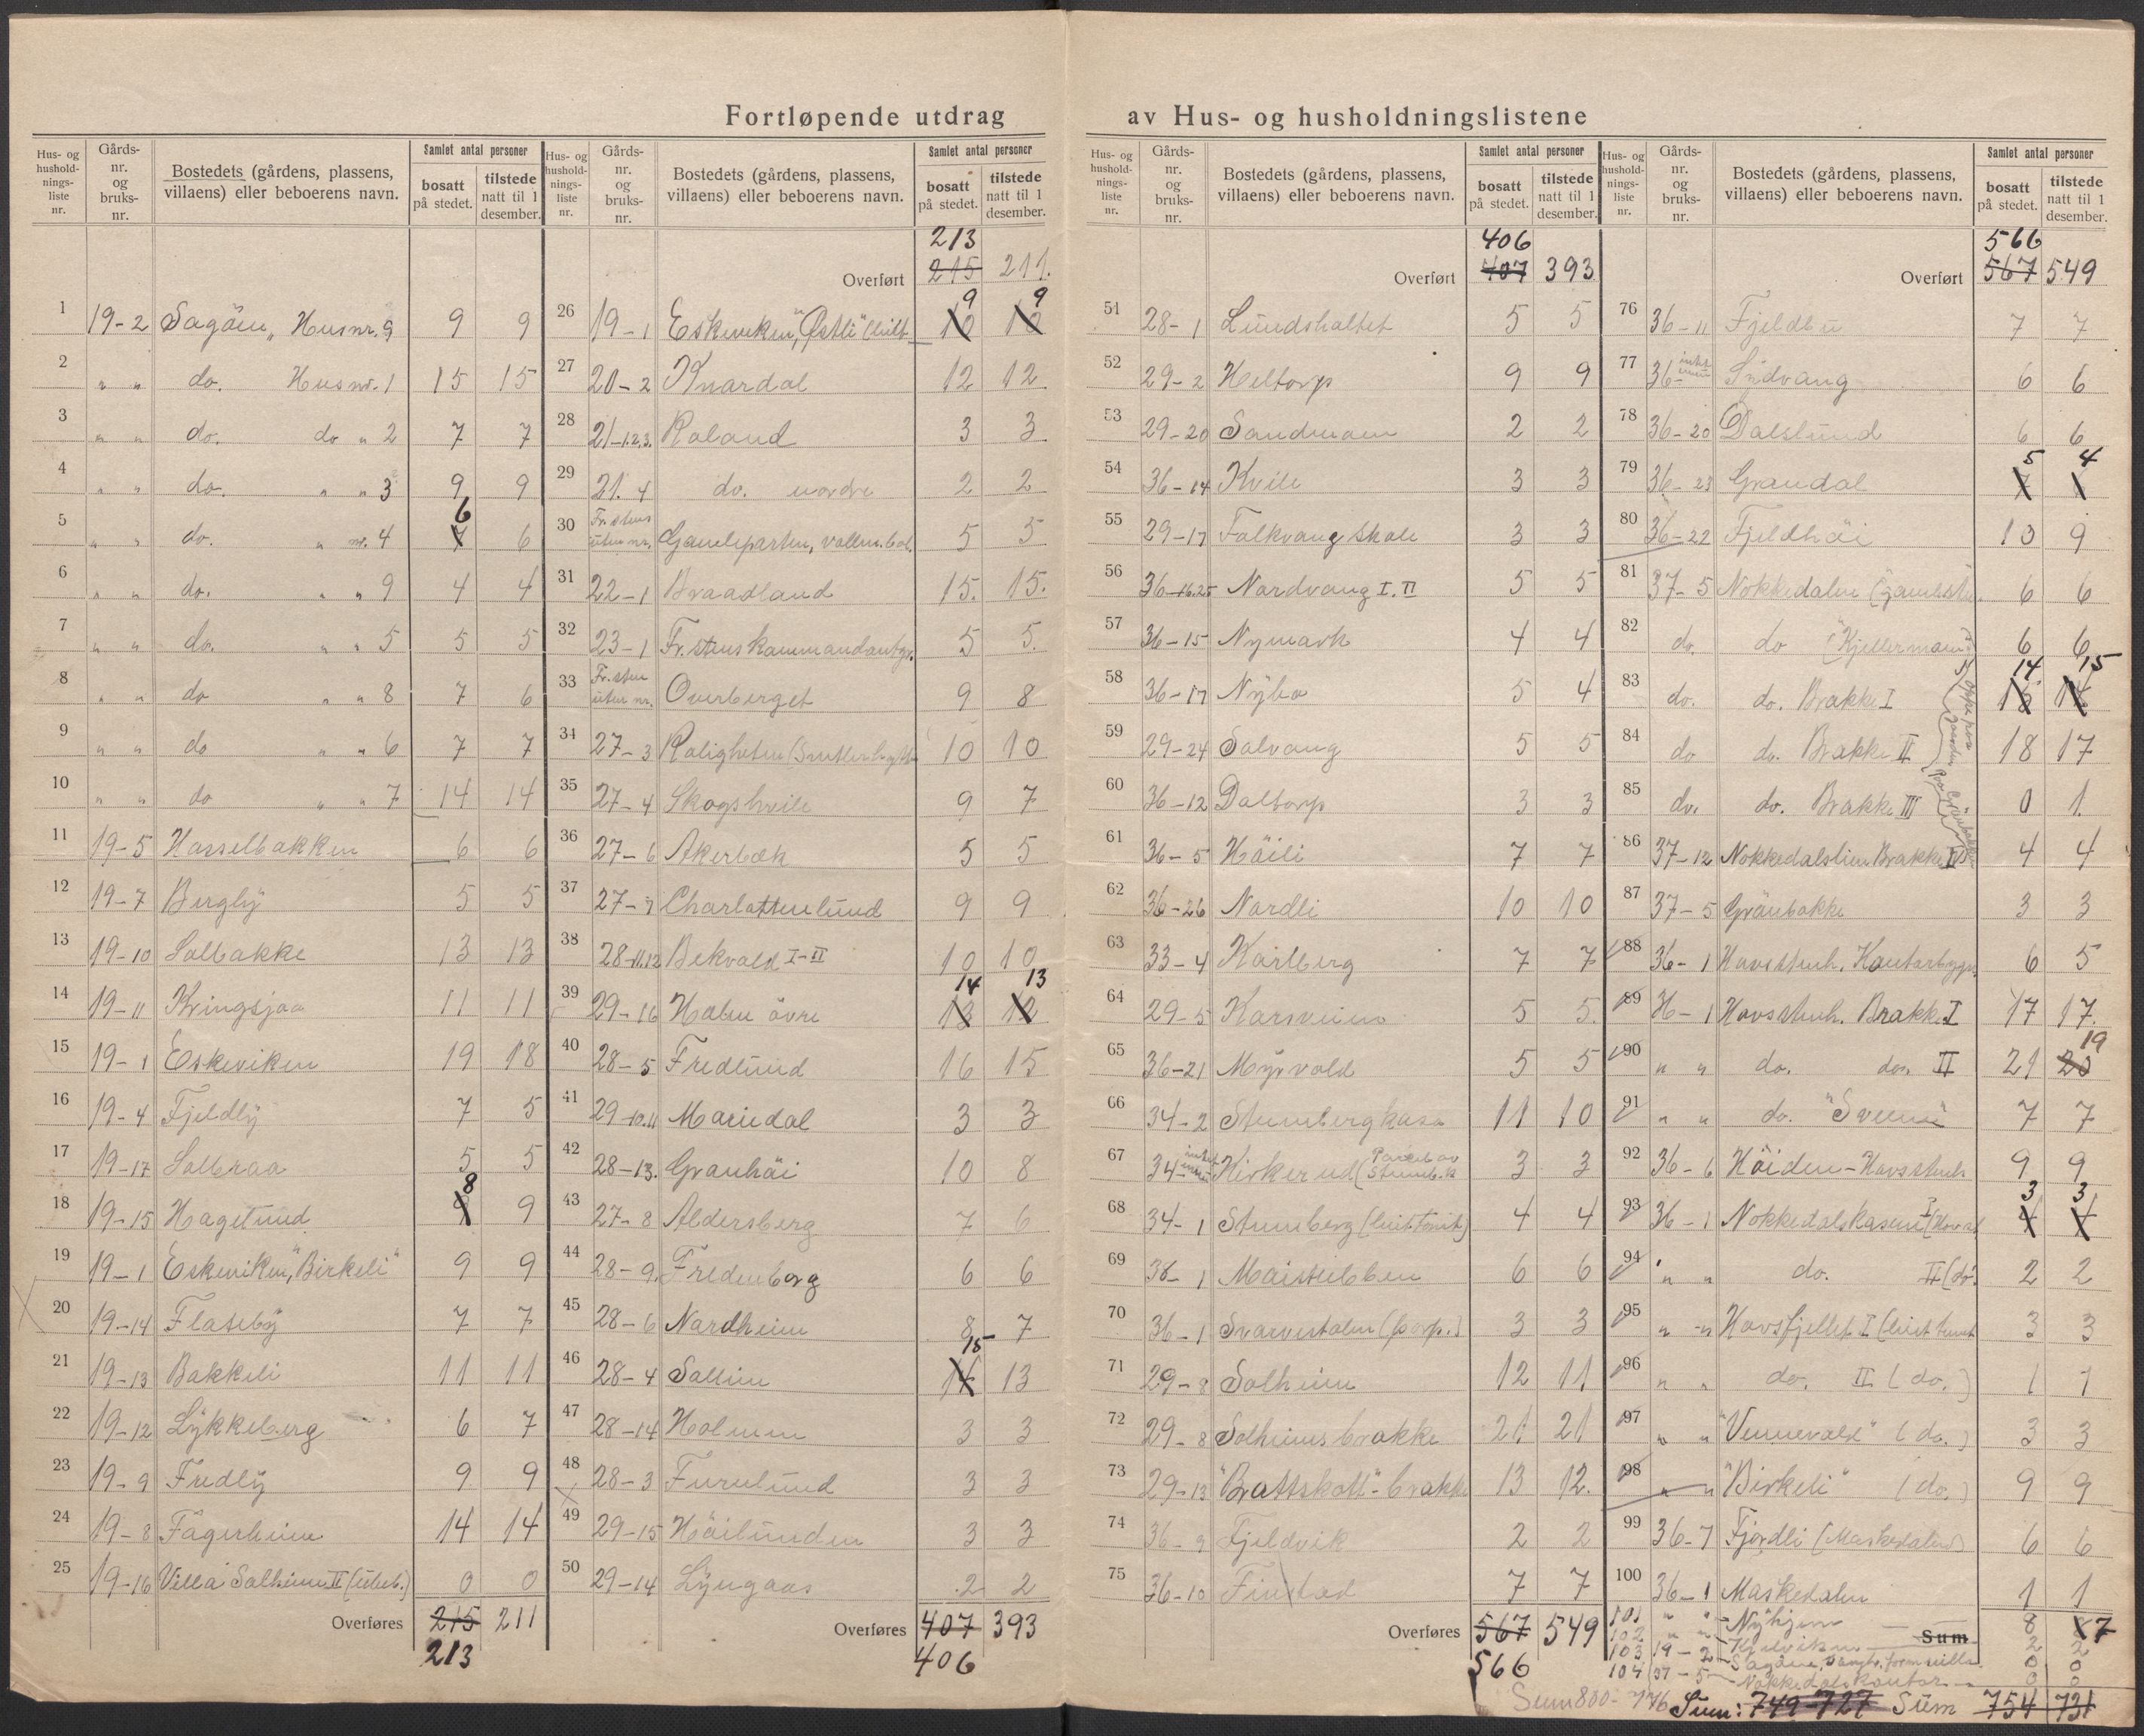 Fortløpende utdrag av Hus- og husholdningslistene
Hus- og hushold-nings-liste nr. Gårds-nr. og bruks-nr. Bostedets (gårdens, plassens, villaens) eller beboerens navn. Samlet antal personer bosatt på stedet. tilstede natt til 1 desember.
1 19-2 Sagöen, Husnr. 9 9 9
2 " " do. Husnr. 1 15 15
3 " " do. do " 2 7 7
4 " " do. " " 3 9 9
5 " " do. " nr. 4 7 6 6
6 " " do. " " 9 4 4
7 " " do. " " 5 5 5
8 " " do " " 8 7 6
9 " " do " " 6 7 7
10 " " do " " 7 14 14
11 19-5 Hasselbakken 6 6
12 19-7 Bergly 5 5
13 19-10 Solbakke 13 13
14 19-11 Kringsjaa 11 11
15 19-1 Eskeviken 19 18
16 19-4 Fjeldly 7 5
17 19-17 Solbraa 5 5
18 19-15 Hagelund 9 8 9
19 19-1 Eskeviken, "Birkeli" 9 9
20 19-14 Flaseby 7 7
21 19-13 Bakkeli 11 11
22 19-12 Lykkeberg 6 7
23 19-9 Fredly 9 9
24 19-8 Fagerheim 14 14
25 19-16 Villa Solheim II (ubeb.) 0 0
Overføres 215 211
213
Hus- og hushold-nings-liste nr. Gårds-nr. og bruks-nr. Bostedets (gårdens, plassens, villaens) eller beboerens navn. Samlet antal personer bosatt på stedet. tilstede natt til 1 desember.
213
Overført 215 211.
26 19-1 Eskeviken, "Østli" 10 9 10 9
27 20-2 Knardal 12 12
28 21-1.2.3. Roland 3 3
29 21.4 do. nordre 2 2
30 Fr.stens uten nr. 5 5
31 22-1 Braadland 15. 15.
32 23-1 Fr.stens Kommandantgr. 5 5.
33 Fr.sten uten nr. Overberget 9 8
34 27-3 Roligheten 10 10
35 27-4 Skogshvile 9 7
36 27-6 Akerbæk 5 5
37 27-7 Charlottenlund 9 9
38 28-11.12 Bekvold I-II 10 10
39 29-16 Holm övre 13 14 12 13
40 28-5 Fredlund 16 15
41 29-10.11 Mariedal 3 3
42 28-13. Granhöi 10 8
43 27-8 Aldersberg 7 6
44 28-9. Fredenborg 6 6
45 28-6 Nordheim 8 7
46 28-4 Sollien 14 15 13
47 28-14 Holmen 3 3
48 28-3 Furulund 3 3
49 29-15 Höilunden 3 3
50 29-14 Lyngaas 2 2
Overføres 407 393
406
Hus- og hushold-nings-liste nr. Gårds-nr. og bruks-nr. Bostedets (gårdens, plassens, villaens) eller beboerens navn. Samlet antal personer bosatt på stedet. tilstede natt til 1 desember.
406
Overført 407 393
51 28-1 Lundsholtet 5 5
52 29-2 Heltorp 9 9
53 29-20 Sandmoen 2 2
54 36-14 Kvile 3 3
55 29-17 Folkvang skole 3 3
56 36-16.25 Nordvang I. II 5 5
57 36-15 Nymark 4 4
58 36-17 Nybo 5 4
59 29-24 Solvang 5 5
60 36-12 Daltorp 3 3
61 36-5 Höili 7 7
62 36-26 Nordli 10 10
63 33-4 Karlberg 7 7
64 29-5 Korsveien 5 5.
65 36-21 Myrvold 5 5
66 34-2 Stumbergkasa 11 10
67 34- Kirkerud (Parcel av Stumb.k 3 3
68 34-1 Stumberg 4 4
69 36-1 Maistubben 6 6
70 36-1 Svarvestolen (forp.) 3 3
71 29-8 Solheim 12 11
72 29-8 Solheims brakke 21 21
73 29-13 "Brattskott"-brakke 13 12.
74 36-9 Fjeldvik 2 2
75 36-10 Finstad 7 7
Overføres 567 549
566
Hus- og hushold-nings-liste nr. Gårds-nr. og bruks-nr. Bostedets (gårdens, plassens, villaens) eller beboerens navn. Samlet antal personer bosatt på stedet. tilstede natt til 1 desember.
566
Overført 567 549
76 36-11 Fjeldbu 7 7
77 36- Sydvang 6 6
78 36-20 Dalslund 6 6
79 36-23 Grandal 5 4
80 36-22 Fjeldhöi 10 9
81 37-5 Nokkedalen 6 6
82 do. do (Kjellerman 6 6
83 do. do. Brakke I 14 15
84 do do. Brakke II 18 17
85 do. do. Brakke III 0 1.
86 37-12 Nokkedalslien Brakke 4 4
87 37-5 Grönbakke 3 3
88 36-1 Hovsstuh. Kontorbygn. 6 5
89 36-1 Hovsstuh. Brakke I 17 17.
90 " " do. do. II 21 20 19
91 " " do. "Sveum" 7 7
92 36-6 Höiden-Hovsstuh 9 9
93 36-1 Nokkedalskasen I 4 3 4 3
94 " " do. II (do. 2 2
95 " " Hovsfjellet I 3 3
96 " " do. II (do.) 1 1
97 " " "Vennevold" (do.) 3 3
98 " " "Birkeli" (do.) 9 9
99 36-7 Fjordli (Maskedalen) 6 6
100 36-1 Maskedalen 1 1
101 " " Nyhjem 8 7
Sum
102 " " Kjelviken 2 2
103 19-2 Sagöene 0 0
104 37-5 Nokkedalskontor 0 0
Sum 800-776 Sum: 749-727 Sum 754 731